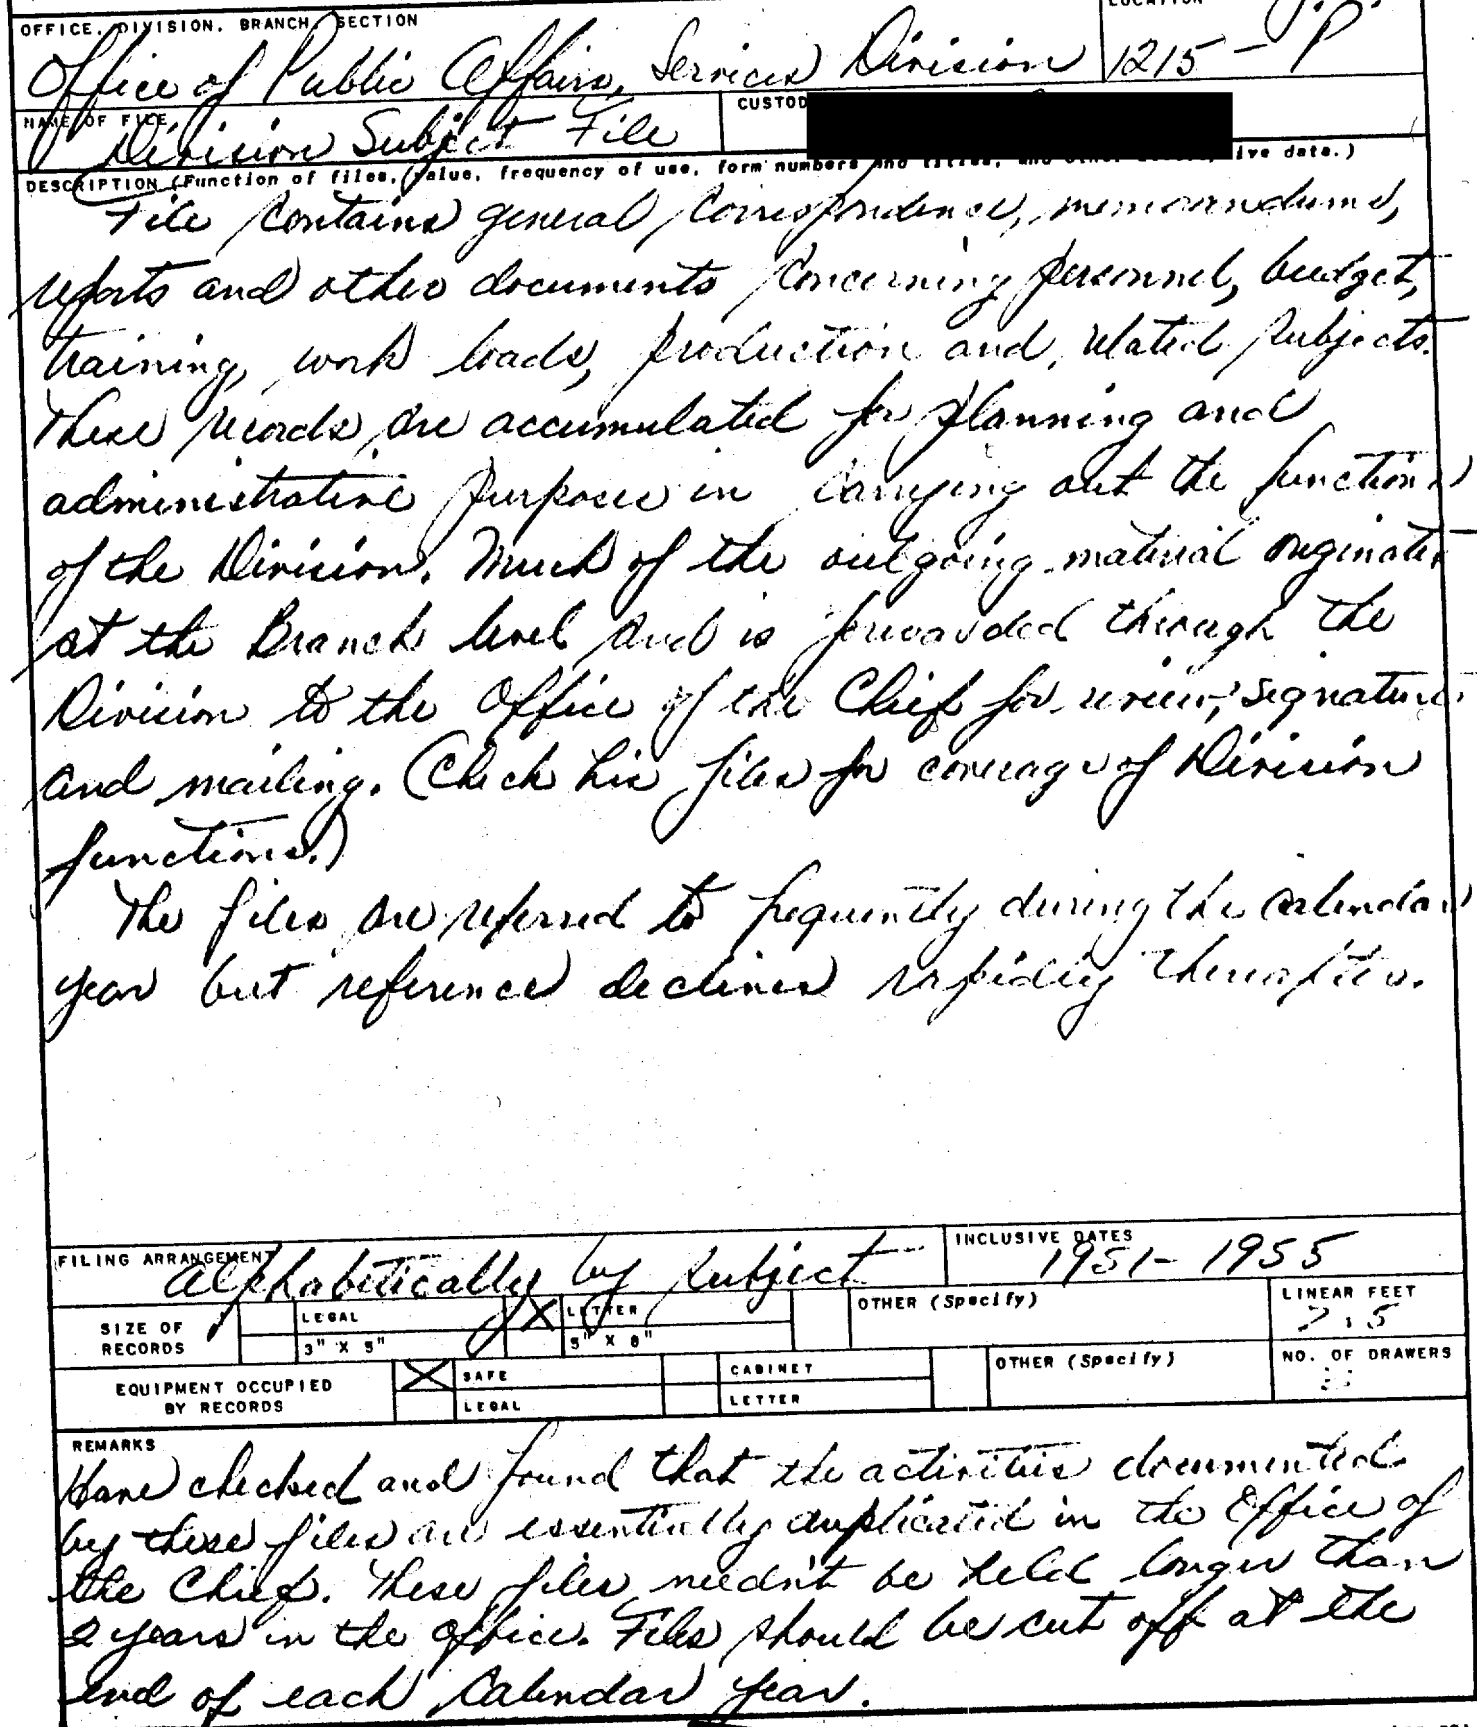 OFFICE, DIVISION, BRANCH, SECTION
LOCATION
Office of Public Affairs, Services Division
1215 - P
NAME OF FILE
CUSTOD
Division Subject File
DESCRIPTION (Function of files, value, frequency of use, form numbers and titles, and other ive data.)
File contains general correspondence, memorandums,
reports and other documents concerning personnel, budget,
training, work loads, production and related subjects.
These records are accumulated for planning and
administrative purposes in carrying out the functions
of the Division. Much of the outgoing material originates
at the Branch level and is forwarded through the
Division to the Office of the Chief for review, signature
and mailing. (Check his files for coverage of Division
functions.)
The files are referred to frequently during the calendar
year but reference declines rapidly thereafter.
FILING ARRANGEMENT
Alphabetically by subject
INCLUSIVE DATES
1951-1955
SIZE OF RECORDS
LEGAL
X
LETTER
3" X 5"
5" X 8"
OTHER (Specify)
LINEAR FEET
EQUIPMENT OCCUPIED BY RECORDS
X
SAFE
CABINET
LEGAL
LETTER
OTHER (Specify)
NO. OF DRAWERS
REMARKS
Have checked and found that the activities documented
by these files are essentially duplicated in the Office of
the Chief. These files needn't be held longer than
2 years in the office. Files should be cut off at the
end of each Calendar year.